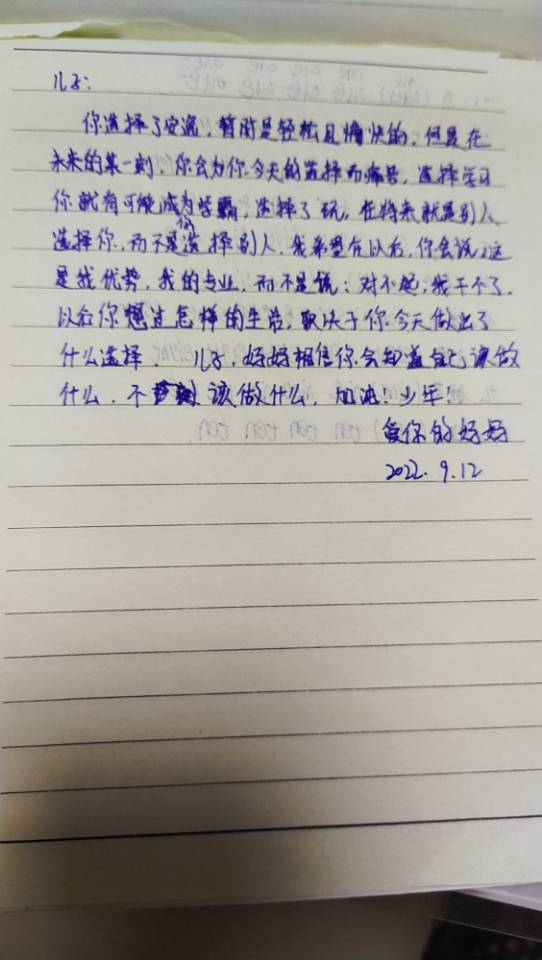 儿子：
你选择了安逸，暂时是轻松且愉快的，但是在
未来的某一刻，你会为你今天的选择而痛苦，选择学习
你就有可能成为学霸，选择了玩，在将来就是别人
选择你，而不是你选择别人，我希望在以后，你会说，这
是我优势，我的专业，而不是说：对不起，我干不了．
以后你想过怎样的生活，取决于你今天做出了
什么选择． 儿子，妈妈相信你会知道自己该做
什么，不该做什么，加油！少年！
爱你的妈妈
2022．9.12